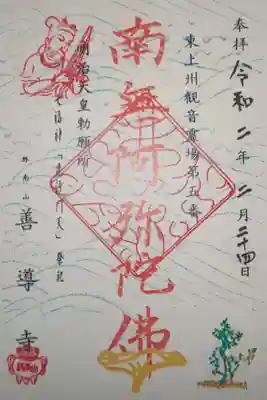 奉拝 令和二年二月二十四日
東上州観音霊場第五番
南無阿弥陀佛
明治天皇勅願所
七福神
善導寺